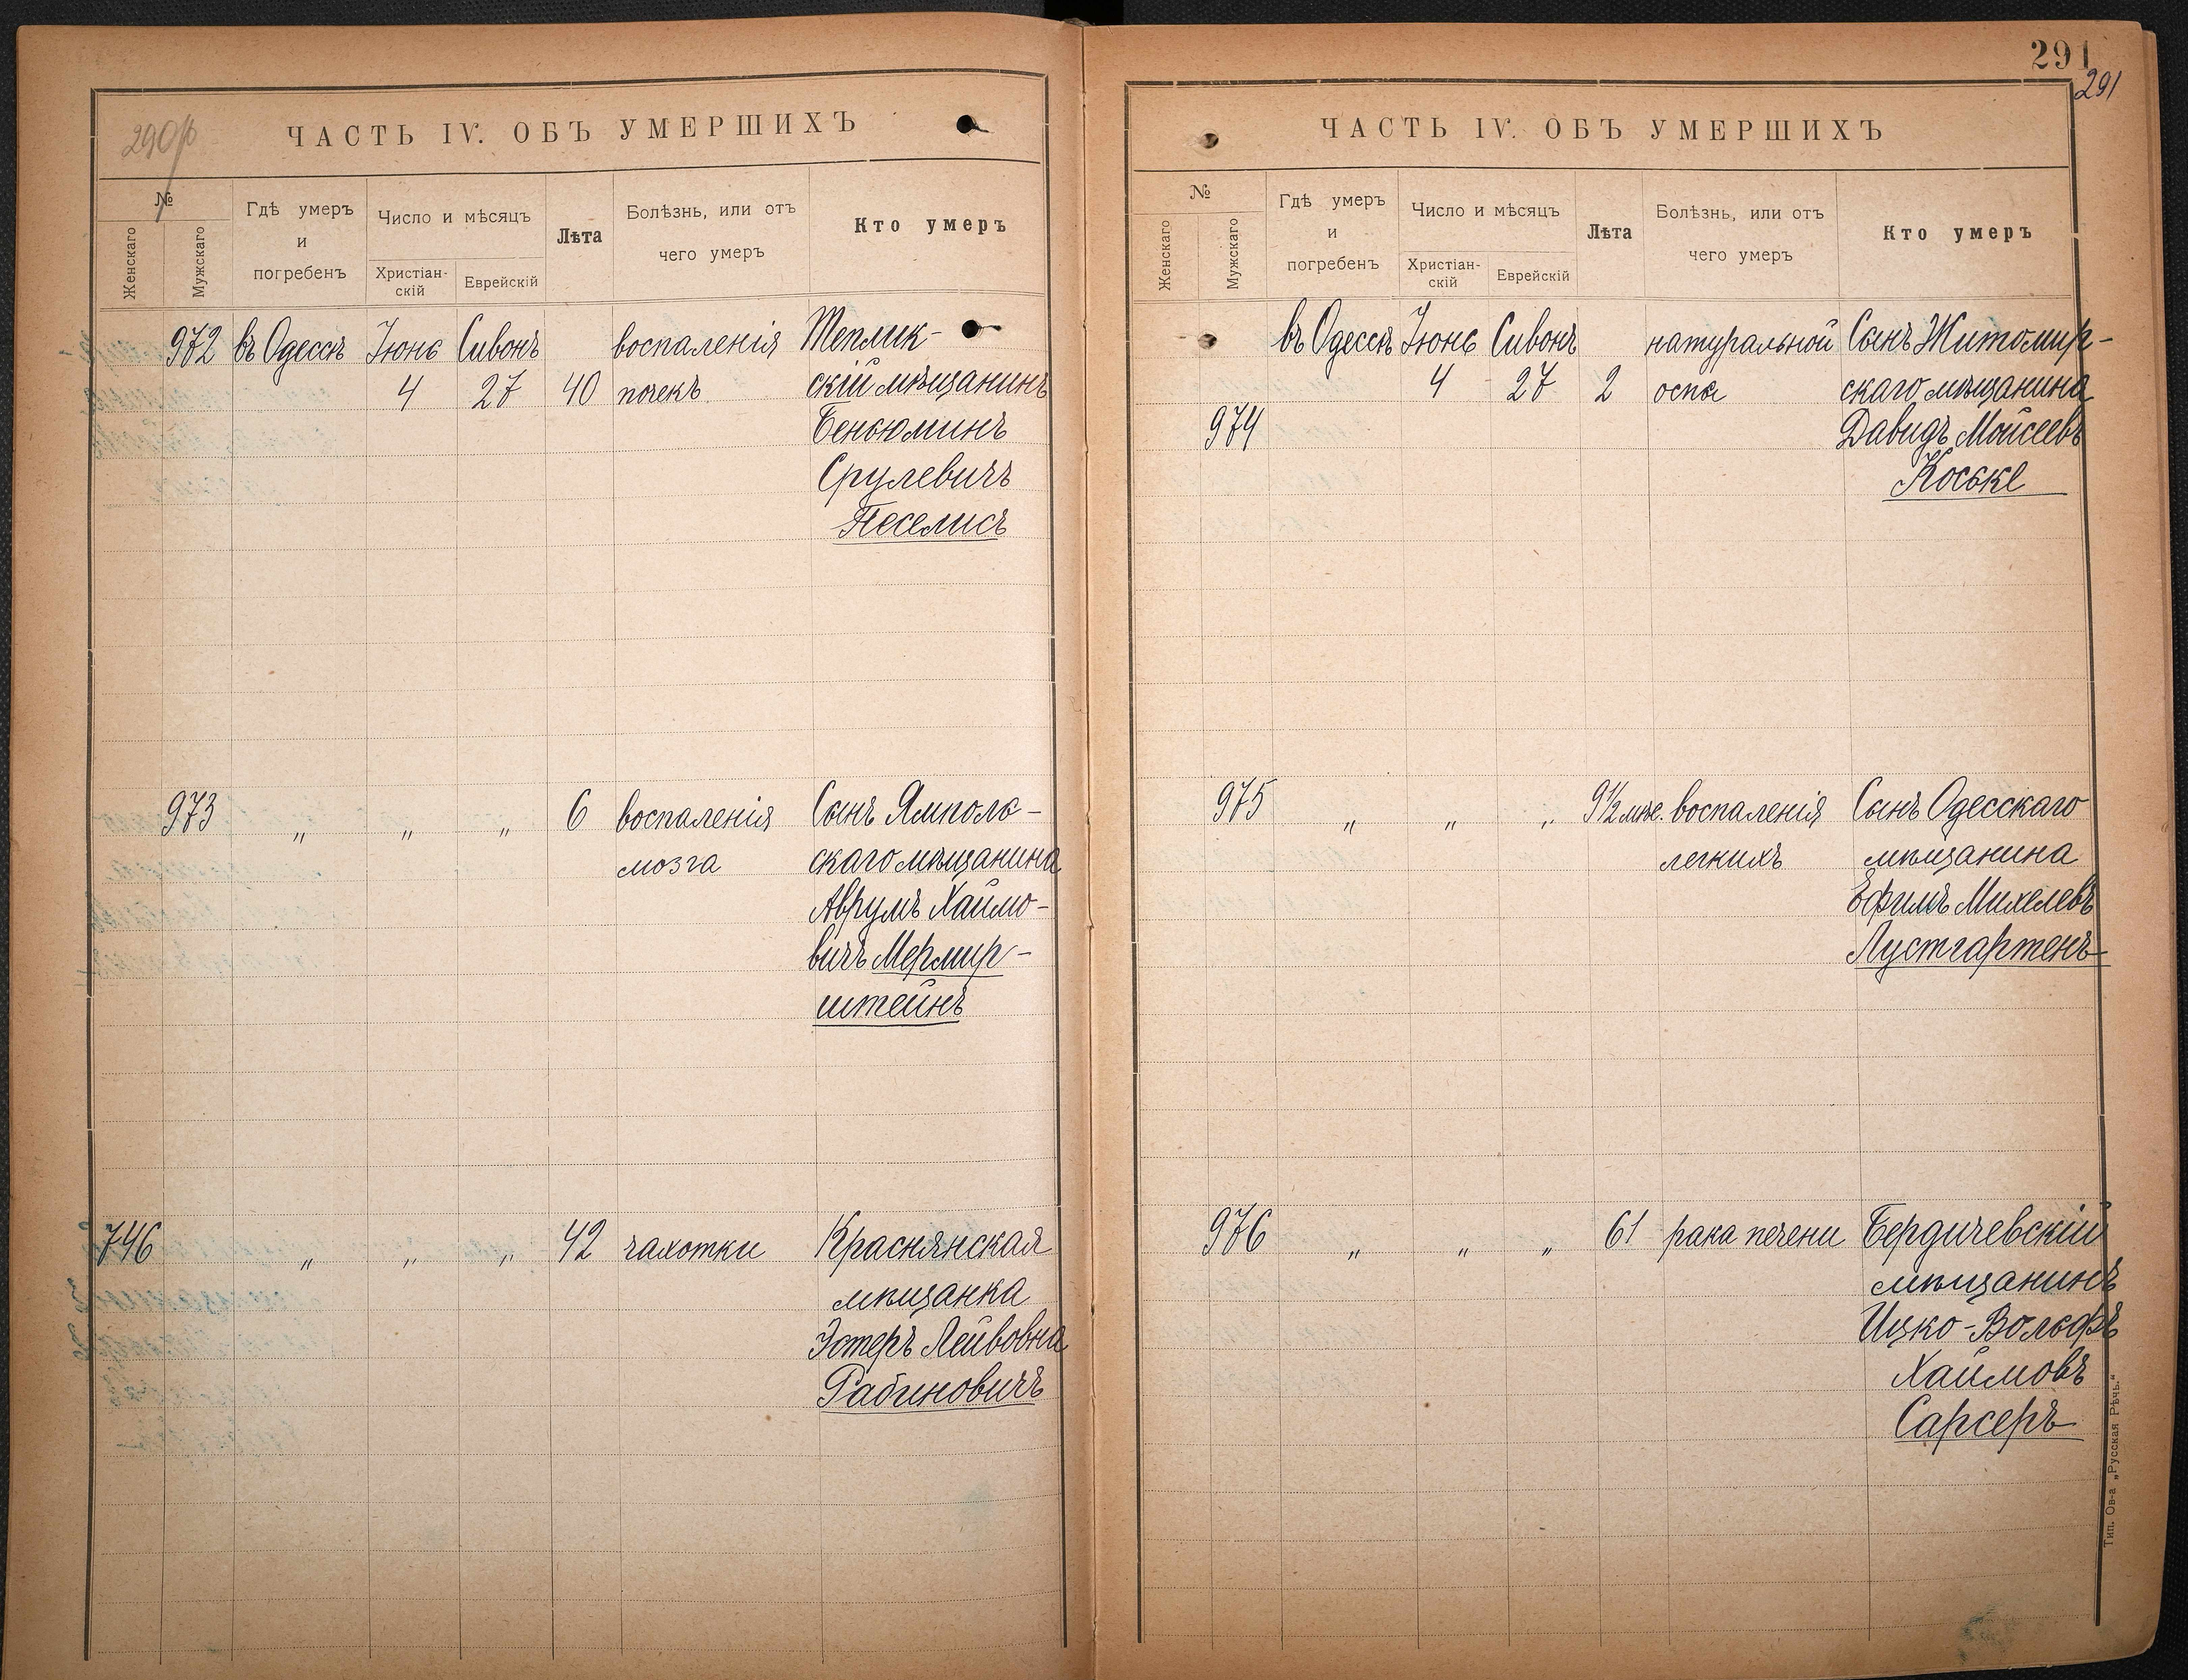 ЧАСТЬ IV. ОБЪ УМЕРШИХЪ
№
Женскаго
Мужскаго
Гдѣ умеръ
и
погребенъ
Число и мѣсяцъ
Христіан-
скій
Еврейскій
Лѣта
Болѣзнь, или отъ
чего умеръ
Кто умеръ
972 въ Одессѣ Іюнь Сивонъ воспаленія Теплик-
4 27 40 почекъ скій мѣщанинъ
Беньюминъ
Срулевичъ
Песелисъ
973 „ „ „ 6 воспаленія Сынъ Ямполь-
мозга скаго мѣщанина
Аврумъ Хаймо-
вичъ Мермир-
штейнъ
746 „ „ „ 42 чахотки Краснянская
мѣщанка
Эстеръ Лейбовна
Рабиновичъ
291
291
ЧАСТЬ IV. ОБЪ УМЕРШИХЪ
№
Женскаго
Мужскаго
Гдѣ умеръ
и
погребенъ
Число и мѣсяцъ
Христіан-
скій
Еврейскій
Лѣта
Болѣзнь, или отъ
чего умеръ
Кто умеръ
въ Одессѣ Іюнь Сивонъ натуральной Сынъ Житомир-
4 27 2 оспы скаго мѣщанина
974 Давидъ Мойсеевъ
Коське
975 „ „ „ 9½ мѣс. воспаленія Сынъ Одесскаго
легкихъ мѣщанина
Ефимъ Михелевъ
Лустгартенъ
976 „ „ „ 61 рака печени Бердичевскій
мѣщанинъ
Ицко-Вольфъ
Хаимовъ
Сарсеръ
Тип. Ов-а „Русская Рѣчь.“